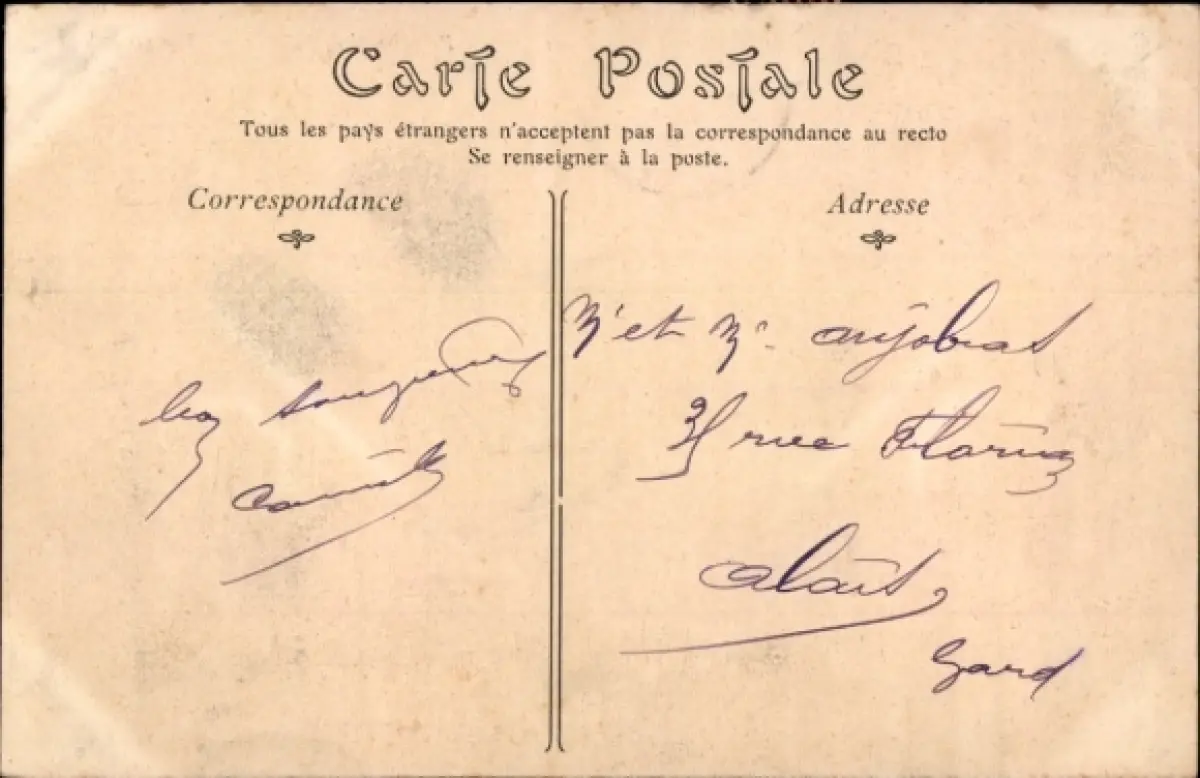 Carte Postale
Tous les pays étrangers n'acceptent pas la correspondance au recto
Se renseigner à la poste.
Correspondance
Adresse
Mr et Me anjobras
rue Florian
alais
Gard